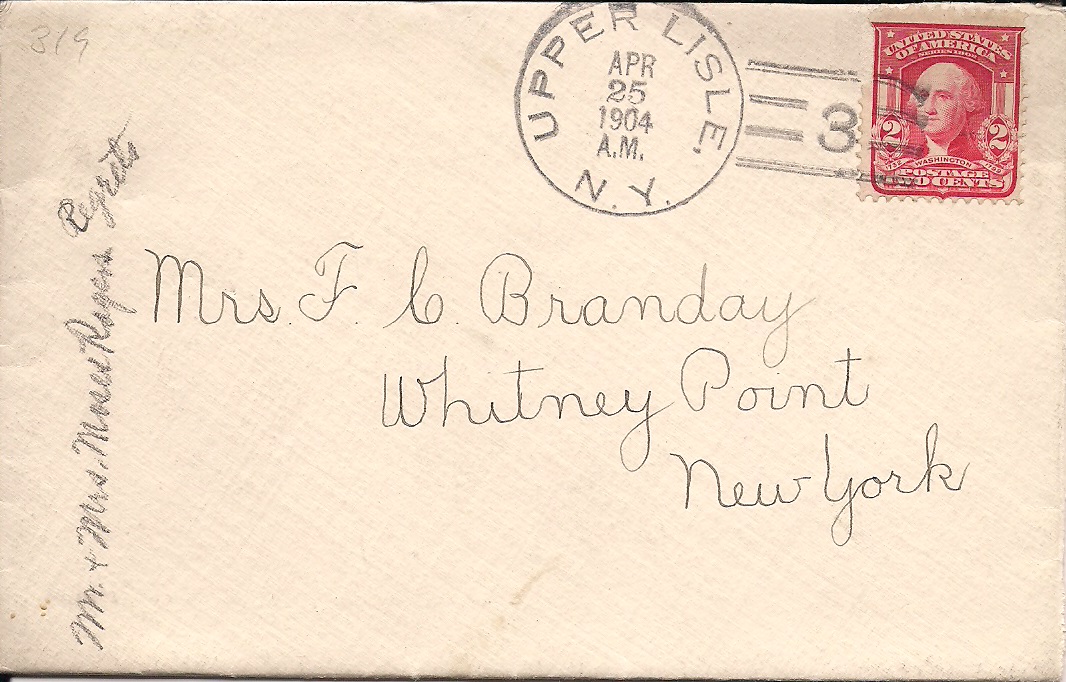 319
UPPER LISLE,
N.Y.
APR
25
1904
A.M.
3
UNITED STATES
OF AMERICA
SERIES 1902
2 2
1732 WASHINGTON 1799
POSTAGE
TWO CENTS
Mrs. F. C. Branday
Whitney Point
New York
Mr. + Mrs. Moses Rogers Regrets